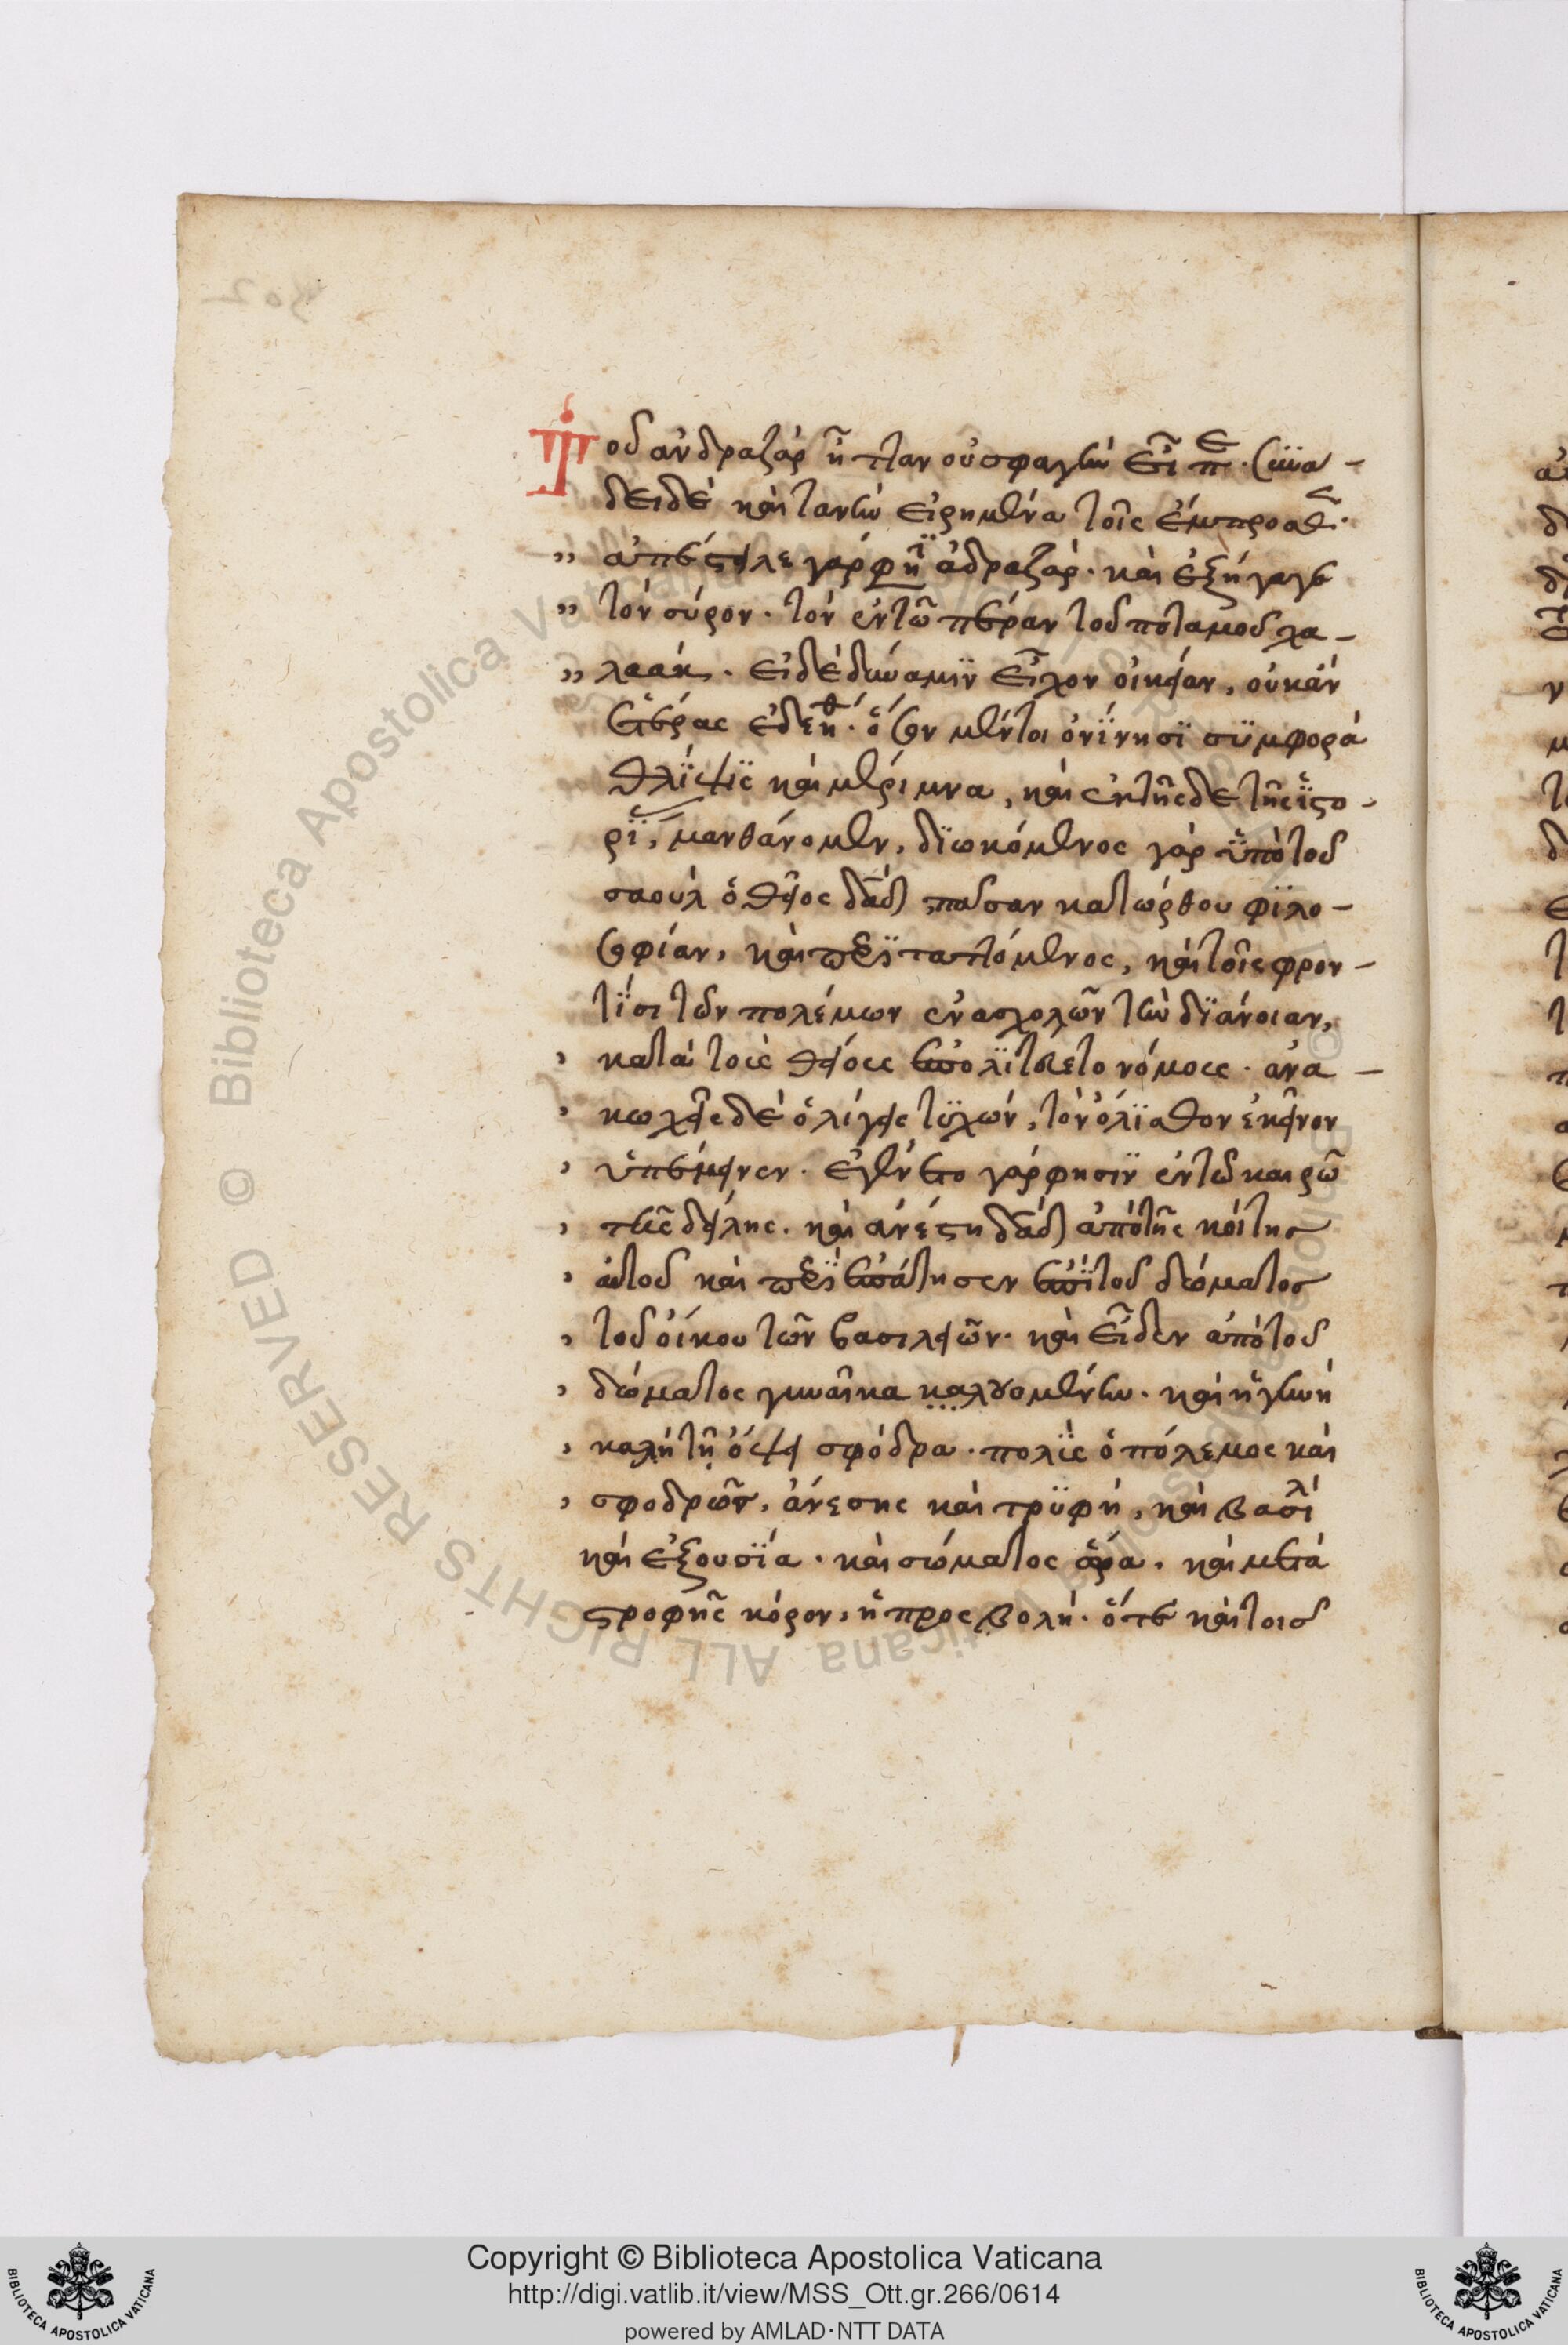 τοῦ ἀνδραζὰρ ἧτταν οὐσφαγὴν εἶπε. συνα-
δει δὲ καὶ ταύτη εἰρημένα τοῖς ἔμπροσθεν.
" ἀπέστειλε γάρ φησι ἀδραζάρ. καὶ ἐξήγαγε
" τὸν σύρον. τὸν ἐν τῶ πέραν τοῦ ποταμοῦ χα-
" λαάκ. εἰ δὲ δύναμϊν εἶχον οἰκείαν, οὐκ ἂν
ἑτέρας ἐδεήθη. ὅσην μέντοι ὀνΐνησϊ σϋμφορά
θλίψϊς καὶ μέριμνα, καὶ ἐκ τῆς δε τῆς ϊστο-
ρΐας μανθάνομεν, δϊωκόμενος γὰρ ϋπὸ τοῦ
σαοὺλ ὁ θεῖος δᾱδ πᾶσαν κατώρθου φϊλο-
σοφίαν, καὶ περιϊστατόμενος, καὶ τοῖς φρον-
τΐσι τῶν πολέμων ἐνασχολῶν τὴν δϊάνοιαν,
, κατὰ τοὺς θείους ἐπολϊτεύετο νόμους. ἀνα-
, κωχῆς δὲ ὀλίγης τϋχών, τὸν ὀλϊσθον ἐκεῖνον
, ὑπέμεινεν. ἐγένετο γάρ φησϊν ἐν τῶ καιρῶ
, τῆς δείλης. καὶ ἀνέστη δᾱδ ἀπὸ τῆς κοίτης
, αὐτοῦ καὶ περιϊεπάτησεν ἐπὶ τοῦ δώματος
, τοῦ οἴκου τῶν βασιλέων. καὶ εἶδεν ἀπὸ τοῦ
, δώματος γυναῖκα καλουομένην. καὶ ἡ γυνὴ
, καλὴ τῆ ὄψει σφόδρα. πολὺς ὁ πόλεμος καὶ
, σφοδρῶς, ἄνεσης καὶ τρϋφὴ, καὶ βασιλεί
καὶ ἐξουσΐα. καὶ σώματος ὥρα. καὶ μετὰ
στροφῆς κόρον, ἡ προσβολὴ. ὅτε καὶ τοῖς
Copyright © Biblioteca Apostolica Vaticana
http://digi.vatlib.it/view/MSS_Ott.gr.266/0614
powered by AMLAD·NTT DATA